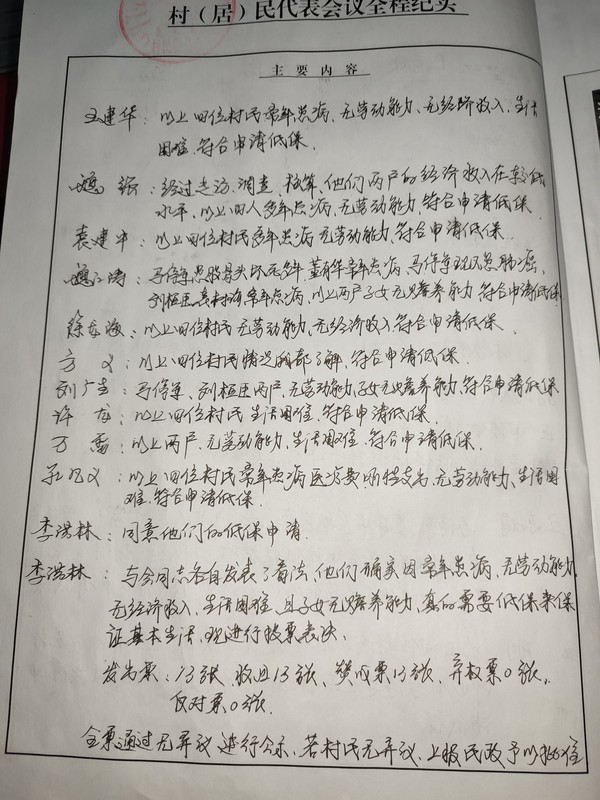 村(居)民代表会议全程纪实
主要内容
王建华：以上四位村民常年患病、无劳动能力、无经济收入、生活
困难、符合申请低保。
张：经过走访、调查、核算、他们两户的经济收入在较低
水平、以上四人多年患病、无劳动能力、符合申请低保。
袁建中：以上四位村民多年患病、无劳动能力、符合申请低保。
涛：马传军患股骨头坏死多年、常年患病、马传军现又患肺癌、
刘桂臣、常年患病、以上两户子女无赡养能力、符合申请低保
徐龙海：以上四位村民无劳动能力、无经济收入符合申请低保、
方义：以上四位村民情况我都了解、符合申请低保。
刘广生：马传军、刘桂臣两户、无劳动能力、子女无赡养能力、符合申请低保
许龙：以上四位村民生活困难、符合申请低保、
万雷：以上两户、无劳动能力、生活困难、符合申请低保。
孔凡义：以上四位村民常年患病医疗费用支出、无劳动能力、生活困
难、符合申请低保。
李洪林：同意他们的低保申请.
李洪林：与会同志各自发表了看法、他们确实因常年患病、无劳动能力、
无经济收入、生活困难、且子女无赡养能力、真的需要低保来保
证基本生活、现进行投票表决、
发出票：13张、收回13张、赞成票13张、弃权票0张、
反对票0张.
全票通过无异议进行公示、若村民无异议、上报民政予以批准